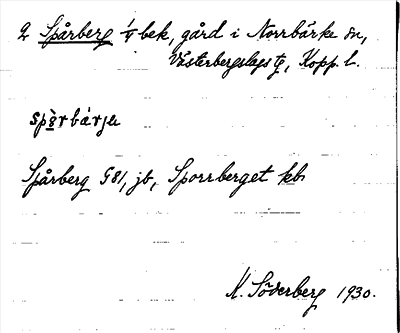 2 Spårberg 1/4 bek, gård i Norrbärke sn,
Västerbergslags tg, Kopp. l.
spò̱rbàrje
Spårberg G81, jb, Sporrberget kb
M. Söderberg 1930.